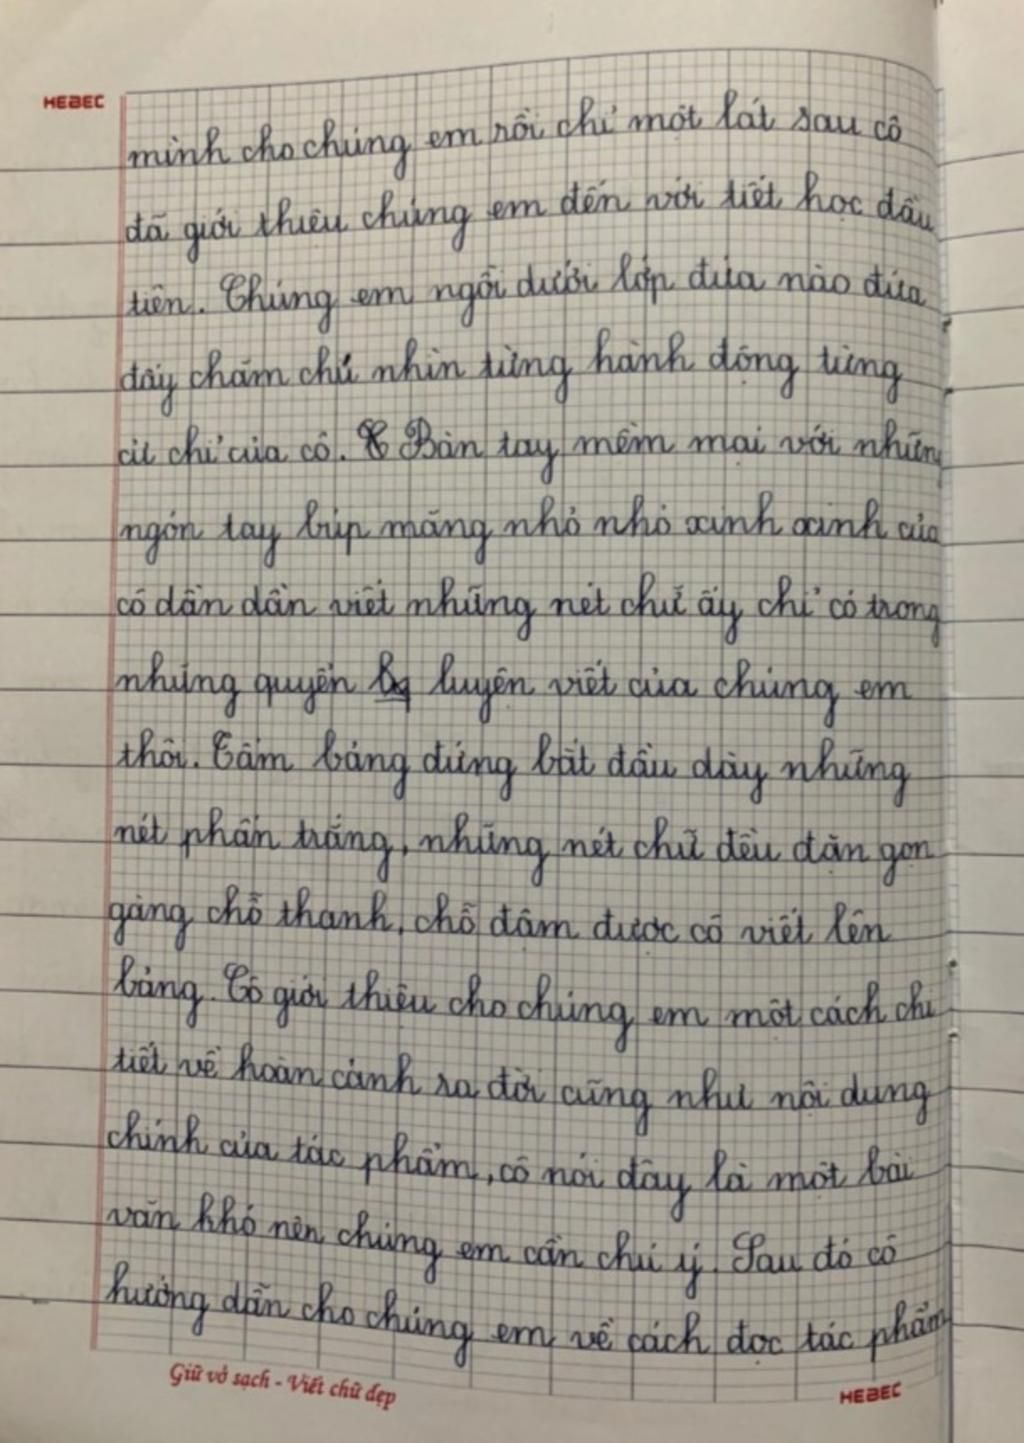 HEBEC
mình cho chúng em rồi chỉ một lát sau cô
đã giới thiệu chúng em đến với tiết học đầu
tiên. Chúng em ngồi dưới lớp đứa nào đứa
đấy chăm chú nhìn từng hành động từng
cử chỉ của cô. Bàn tay mềm mại với những
ngón tay búp măng nhỏ nhỏ xinh xinh của
cô dần dần viết những nét chữ ấy chỉ có trong
những quyển luyện viết của chúng em
thôi. Tấm bảng đứng bắt đầu dày những
nét phấn trắng, những nét chữ đều đặn gọn
gàng chỗ thanh, chỗ đậm được cô viết lên
bảng. Cô giới thiệu cho chúng em một cách chi
tiết về hoàn cảnh ra đời cũng như nội dung
chính của tác phẩm, cô nói đây là một bài
văn khó nên chúng em cần chú ý. Sau đó cô
hướng dẫn cho chúng em về cách đọc tác phẩm
Giữ vở sạch - Viết chữ đẹp
HEBEC